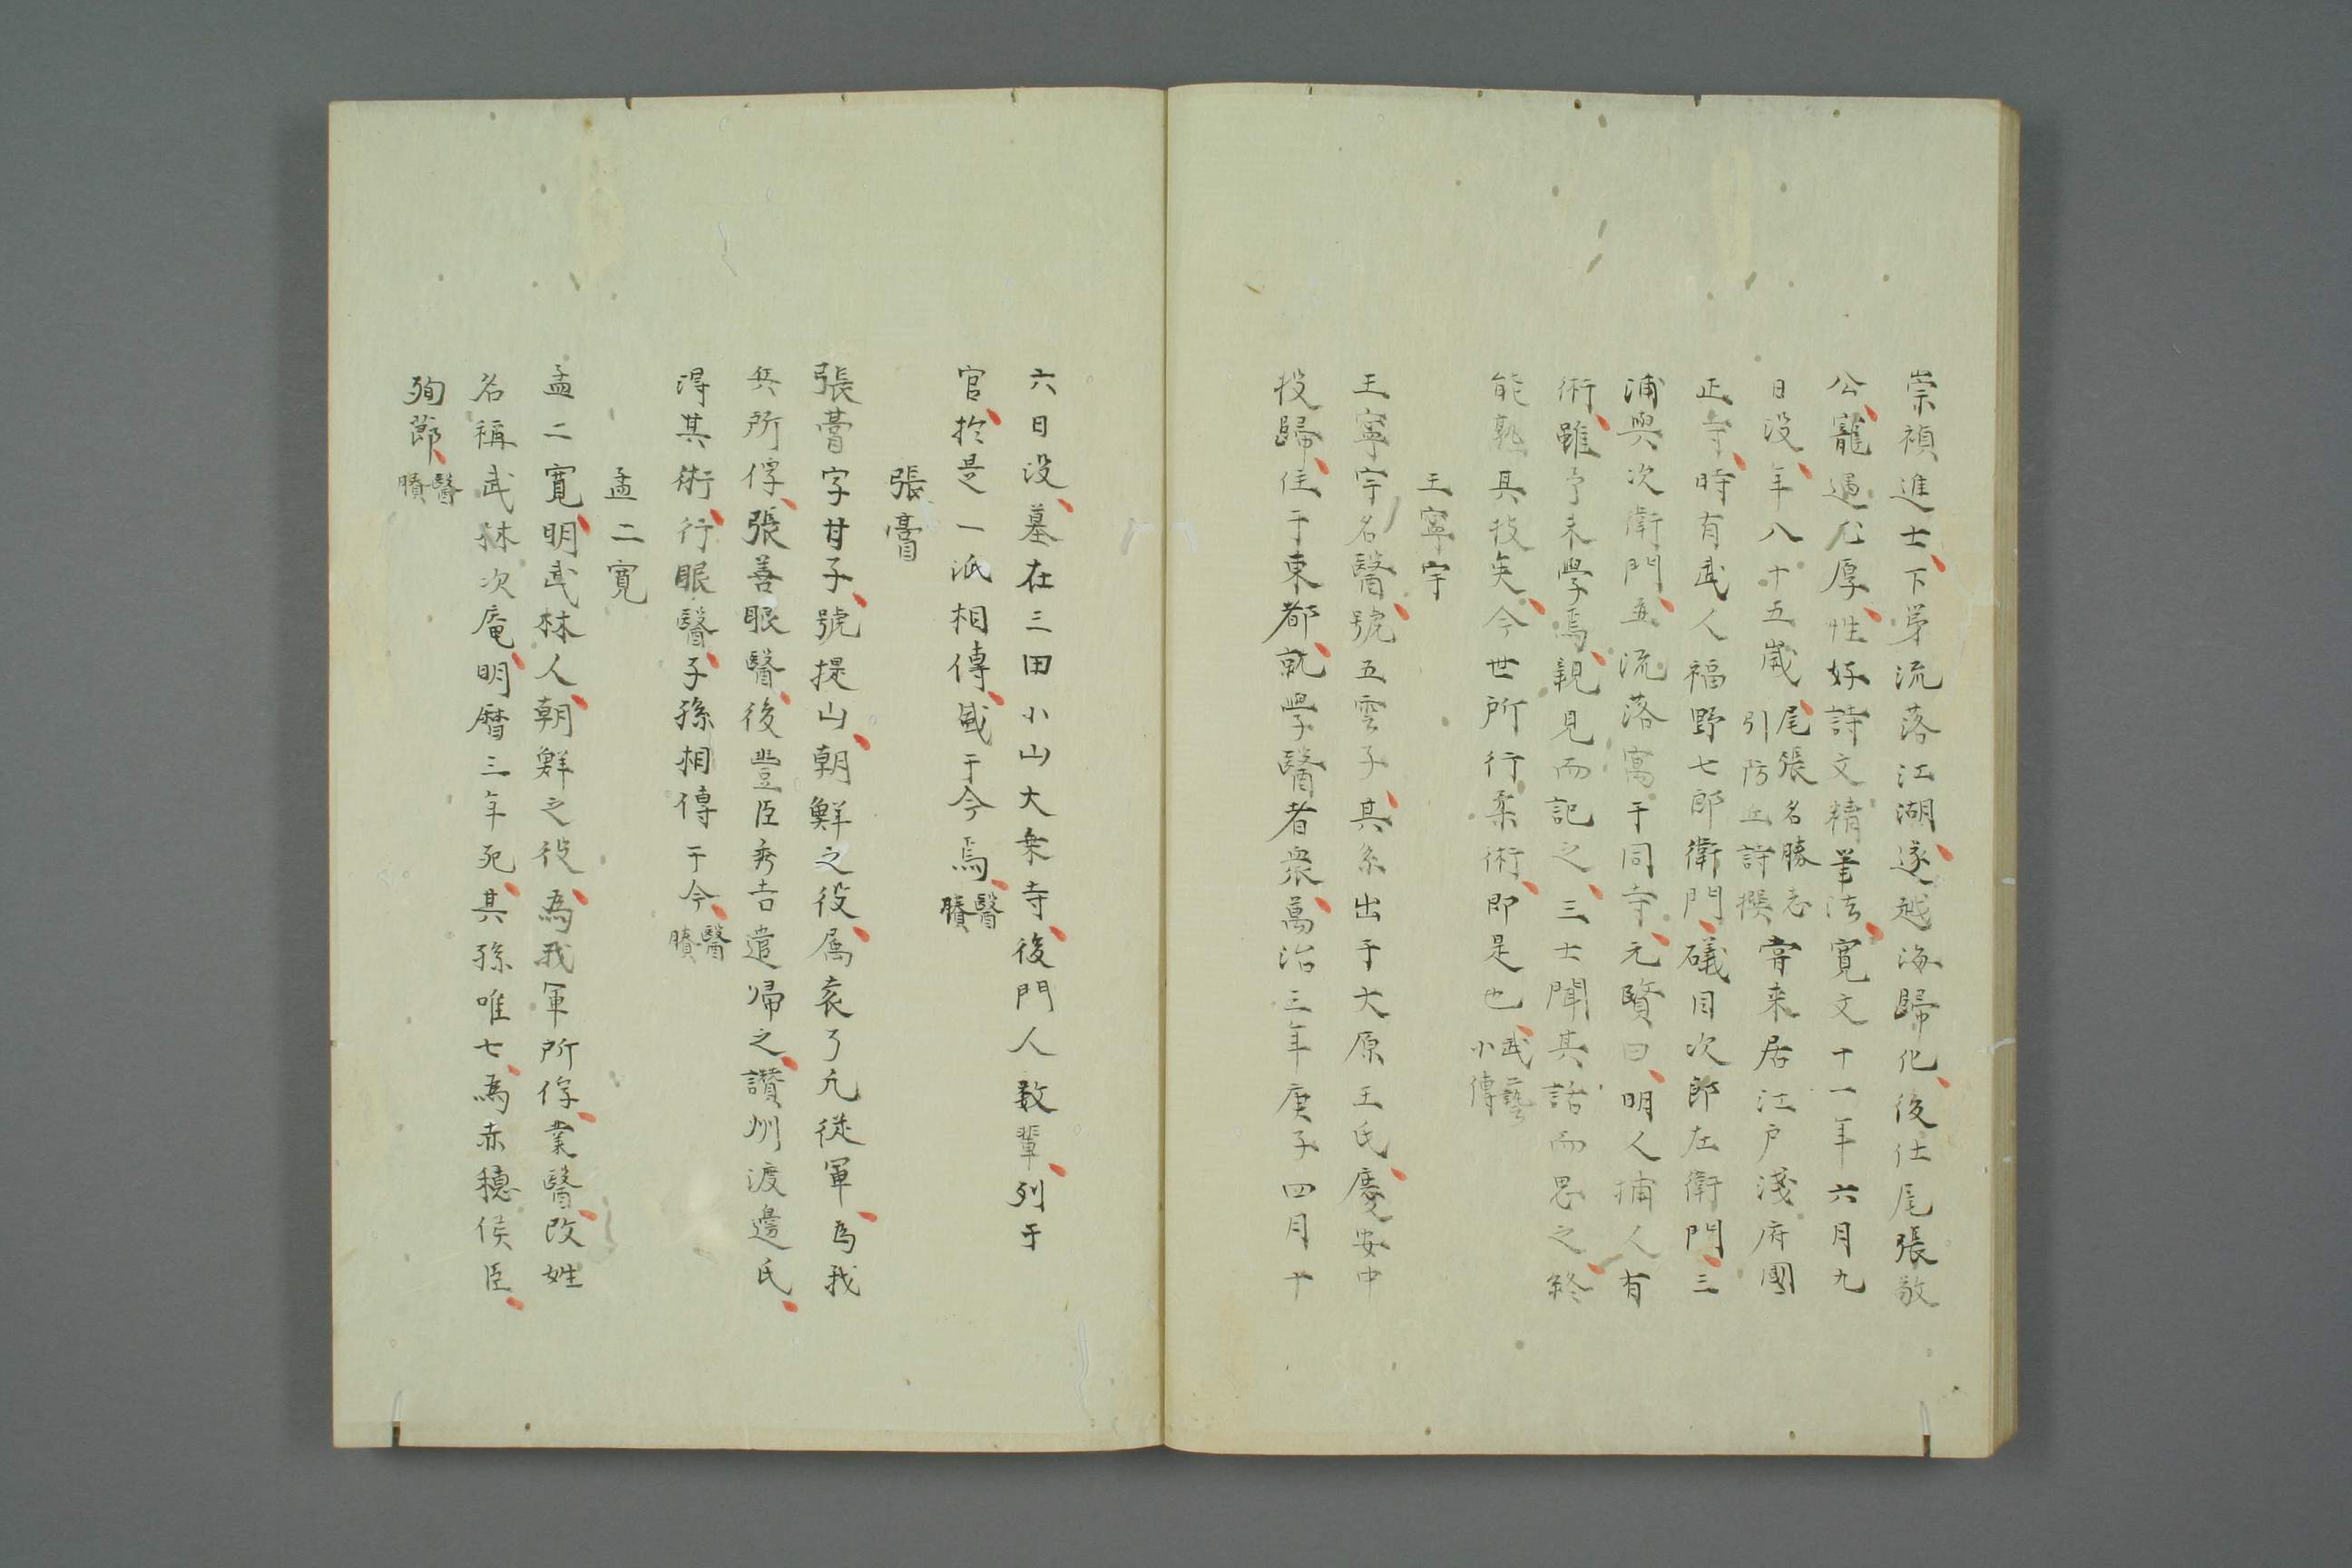 崇禎進士下第流落江湖遂越海歸化後仕尾張敬
公寵遇尤厚性好詩文精筆法寛文十一年六月九
日没年八十五歳
尾張名勝志
引防丘詩撰
甞来居江戸淺府國
正寺時有武人福野七郎衛門礒貝次郎左衛門三
浦與次衛門並流落寓于同寺元贇曰明人捕人有
術雖予未學焉親見而記之三士聞其話而思之終
能熟其技矣今世所行柔術即是也
武藝
小傳
王寧宇
王寧宇名醫號五雲子其系出于大原王氏慶安中
投歸住于東都就學醫者衆萬治三年庚子四月十
六日没墓在三田小山大乗寺後門人数輩列于
官於是一派相傳盛于今焉
醫
賸
張膏
張膏字甘子號提山朝鮮之役属袁了凡従軍為我
兵所俘張善眼醫後豐臣秀吉遣帰之讃州渡邊氏
得其術行眼醫子孫相傳于今
醫
賸
孟二寛
孟二寛明武林人朝鮮之役為我軍所俘業醫改姓
名稱武林次庵明暦三年死其孫唯七為赤穂侯臣
殉節
醫
賸